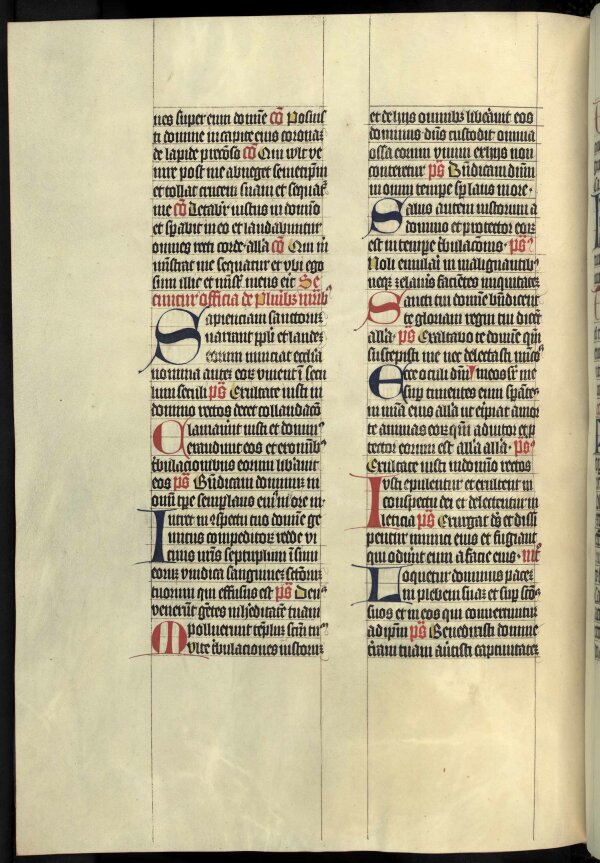 nes super eum domine Co Posuisti
ti domine in capite eius corona
de lapide precioso Co Qui wlt ve
nire post me abneget semetipm
et tollat crucem suam et sequat
me Co Letabit iustus in domino
et sperabit in eo et laudabuntur
omnes recti corde alla Co Qui m
inistrat me sequatur et vbi ego
sum illic et minister meus erit Se
cuntur officia de plurib martirib
Sapienciam sanctorum
narrent ppli et laudes
eorum nunciat ecclia
nomina autem eorum vivent i secu
lum seculi ps Exultate iusti in
domino rectos decet collaudaco
Clamaverunt iusti et dominus
exaudivit eos et ex omnib
tbulacionibus eorum libavit
eos ps Bndicam dominum in
omni tpe semp laus eius in ore m
Intret in conspectu tuo domine ge
mitus compeditorum redde vi
cinis nris septuplum i sinu
eorum vindica sanguinem sctorum
tuorum qui effusus est ps Deus
venerunt gentes in hereditatem tuam
polluerunt templum sctm tuum
Multe tbulaciones iustorum
et de hijs omnibus liberavit eos
dominus dns custodit omnia
ossa eorum vnum ex hijs non
conteretur ps Bndicam dnm
in omni tempe sp laus in ore
Salus autem iustorum a
domino et protector eorum
est in tempe tbulacionis ps
Noli emulari in malignantib
neque zelaveris facientes iniquitatem
Sancti tui domine bndicent
te gloriam regni tui dicent
alla ps Exaltabo te domine qm
suscepisti me nec delectasti inicos
Ecce oculi dni meos sr me
sup timentes eum sperantes
in mia eius alla vt eripiat a morte
te animas eorum qm adiutor et p
tector eorum est alla alla ps
Exultate iusti in domino rectos
Iusti epulentur et exultent in
conspectu dei et delectentur in
leticia ps Exurgat ds et dissi
pentur inimici eius et fugiant
qui oderunt eum a facie eius int
Loquetur dominus pacem
in plebem suam et sup sctos
suos et in eos qui convertuntur
ad ipm ps Benedixisti domine
terram tuam avertisti captivitatem